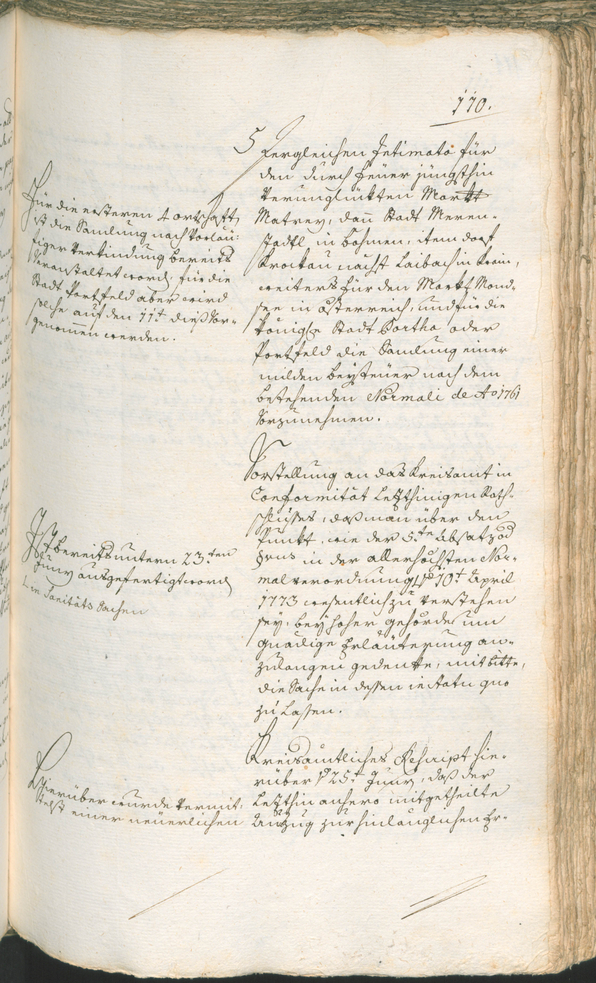 170.
5 dergleichen Intimata für
den durch Feuer jüngsthin
verunglückten Markt
Matrey, dan Stadt Meren-
stadtl, in Böhmen, item dorf
Krockau nächst Laibach in Krain,
weiters für den Markt Mond-
see in Österreich, und für die
Königle Stadt Bartha oder
Bartfeld die Samlung einer
milden Beysteuer nach dem
bestehenden Normali de Ao 1761
vorzunehmen.
Für die ersteren 4 ortschaften
ist die Samlung nach vorläu-
figer Verkündung bereits
veranstaltet word, für die
Stadt Bartfeld aber wird
solche auf den 11t dieß vor-
genommen werden.
Vorstellung an das Kreisamt in
Conformität letzthinigen Rath-
schlusses, daß man über den
Punkt, wie der 5te absatz
in der allerhöchsten Nor-
malverordnung dd 10t April
1773 wesentlich zu verstehen
sey, bey hoher gehörde um
gnädige Erläuterung an-
zulangen gedenke, mit bitte,
die Sache in dessen in statu quo
zu lassen.
Ist bereits untern 23ten
Juny ausgefertigt word
in Sanitäts Sachen
Kreisämtliches Rescript hie-
rüber dd 25t Juny, daß der
letzthin anhero mitgetheilte
Auszug zur hinlänglichen Er-
Hierüber wurde vermit-
telst einer neuerlichen